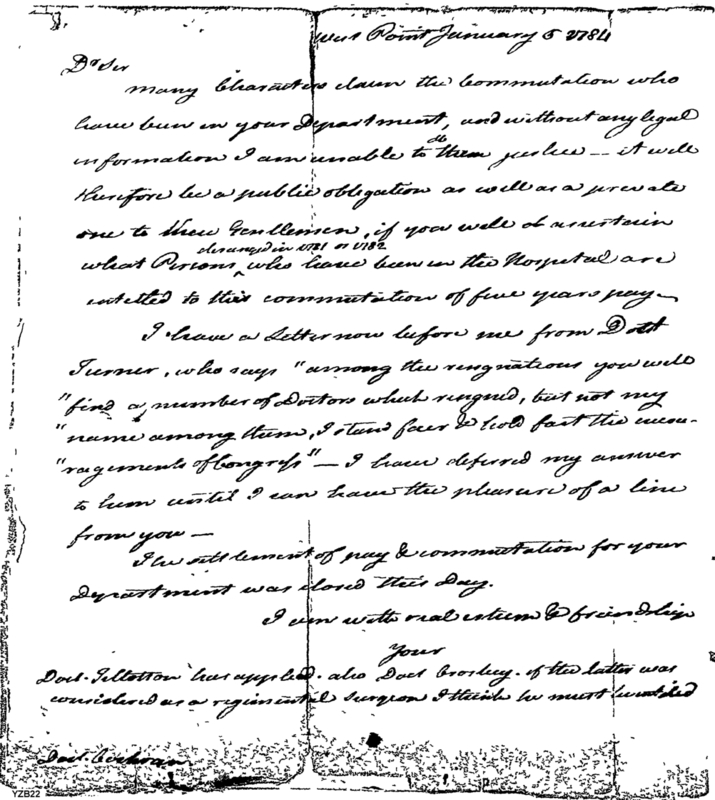 West Point January 5 1784
Dr Sir
many Characters claim the Commutation who
have been in your Department, and without any legal
information I am unable to do them justice — it will
therefore be a public obligation as well as a private
one to these Gentlemen, if you will ascertain
deranged in 1781 or 1782
what Persons, who have been in the Hospital are
intitled to this commutation of five years pay—
I have a Letter now before me from Doct
Turner, who says "among the resignations you will
"find a number of Doctors which resigned, but not my
"name among them, I stand fair & hold fast the encou-
"ragements of Congress" — I have deferred my answer
to him until I can have the pleasure of a line
from you —
The settlement of pay & commutation for your
Department was closed this Day.
I am with real esteem & friendship
Your
Doct. Tillotson has applied. also Doct Crosbey. if the latter was
considered as a regimental Surgeon I think he must be
Doct. Cochran
YZB22